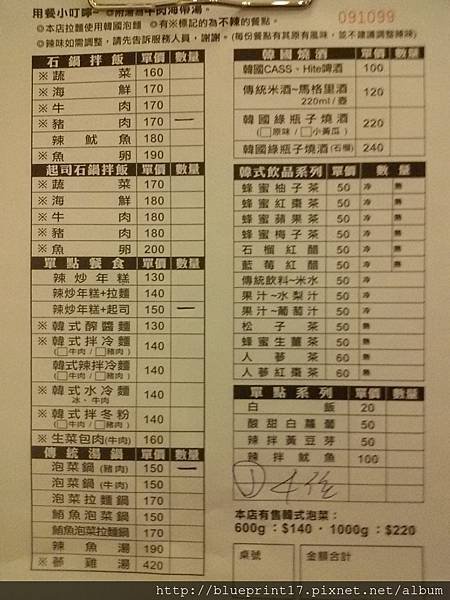 用餐小叮嚀~ ◎附湯為牛肉海帶湯。
◎本店拉麵使用韓國泡麵 ◎有※標記的為不辣的餐點。
◎辣味如需調整,請先告訴服務人員,謝謝。(每份餐點有其原有風味,並不建議調整辣味)
091099
石鍋拌飯 單價 數量
※蔬菜 160
※海鮮 170
※牛肉 170
※豬肉 170 一
辣魷魚 180
※魚卵 190
起司石鍋拌飯 單價 數量
※蔬菜 170
※海鮮 180
※牛肉 180
※豬肉 180
※魚卵 200
單點餐食 單價 數量
辣炒年糕 130
辣炒年糕+拉麵 140
辣炒年糕+起司 150 一
※韓式醡醬麵 130
※韓式拌冷麵 140
(□牛肉/□豬肉)
韓式辣拌冷麵 140
(□牛肉/□豬肉)
※韓式水冷麵 140
冰、牛肉
※韓式拌冬粉 140
(□牛肉/□豬肉)
※生菜包肉(牛肉) 160
傳統湯鍋 單價 數量
泡菜鍋(豬肉) 150 一
泡菜鍋(牛肉) 150
泡菜拉麵鍋 170
鮪魚泡菜鍋 150
鮪魚泡菜拉麵鍋 170
辣魚湯 190
※蔘雞湯 420
韓國燒酒 單價 數量
韓國CASS、Hite啤酒 100
傳統米酒~馬格里酒 120
220ml/壺
韓國綠瓶子燒酒 220
(□原味/□小黃瓜)
韓國綠瓶子燒酒(石榴) 240
韓式飲品系列 單價 數量
蜂蜜柚子茶 50 冷 熱
蜂蜜紅棗茶 50 冷 熱
蜂蜜蘋果茶 50 冷 熱
蜂蜜梅子茶 50 冷 熱
石榴紅醋 50 冷 熱
藍莓紅醋 50 冷 熱
傳統飲料~米水 50 冷
果汁~水梨汁 50 冷
果汁~葡萄汁 50 冷
松子茶 50 熱
蜂蜜生薑茶 50 熱
人蔘茶 60 熱
人蔘紅棗茶 60 熱
單點系列 單價 數量
白飯 20
酸甜白蘿蔔 50
辣拌黃豆芽 50
辣拌魷魚 100
本店有售韓式泡菜:
600g:$140,1000g:$220
桌號 金額合計
http://blueprint17.pixnet.net/album